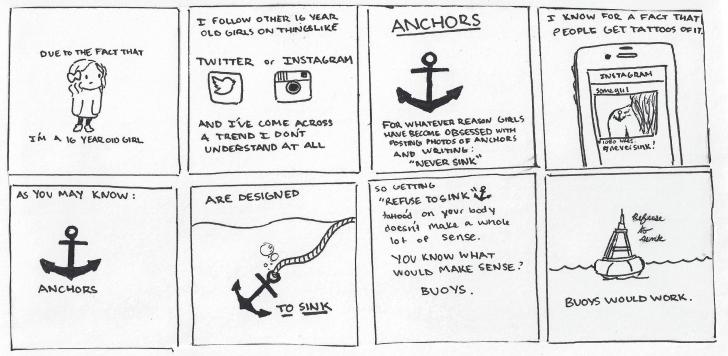 DUE TO THE FACT THAT
I'M A 16 YEAR OLD GIRL
I FOLLOW OTHER 16 YEAR
OLD GIRLS ON THINGS LIKE
TWITTER or INSTAGRAM
AND I'VE COME ACROSS
A TREND I DON'T
UNDERSTAND AT ALL
ANCHORS
FOR WHATEVER REASON GIRLS
HAVE BECOME OBSESSED WITH
POSTING PHOTOS OF ANCHORS
AND WRITING:
"NEVER SINK"
I KNOW FOR A FACT THAT
PEOPLE GET TATTOOS OF IT.
INSTAGRAM
somegirl
#neversink!
AS YOU MAY KNOW:
ANCHORS
ARE DESIGNED
TO SINK
SO GETTING
"REFUSE TO SINK"
tattoo'd on your body
doesn't make a whole
lot of sense.
YOU KNOW WHAT
WOULD MAKE SENSE?
BUOYS.
Refuse
to
sink
BUOYS WOULD WORK.